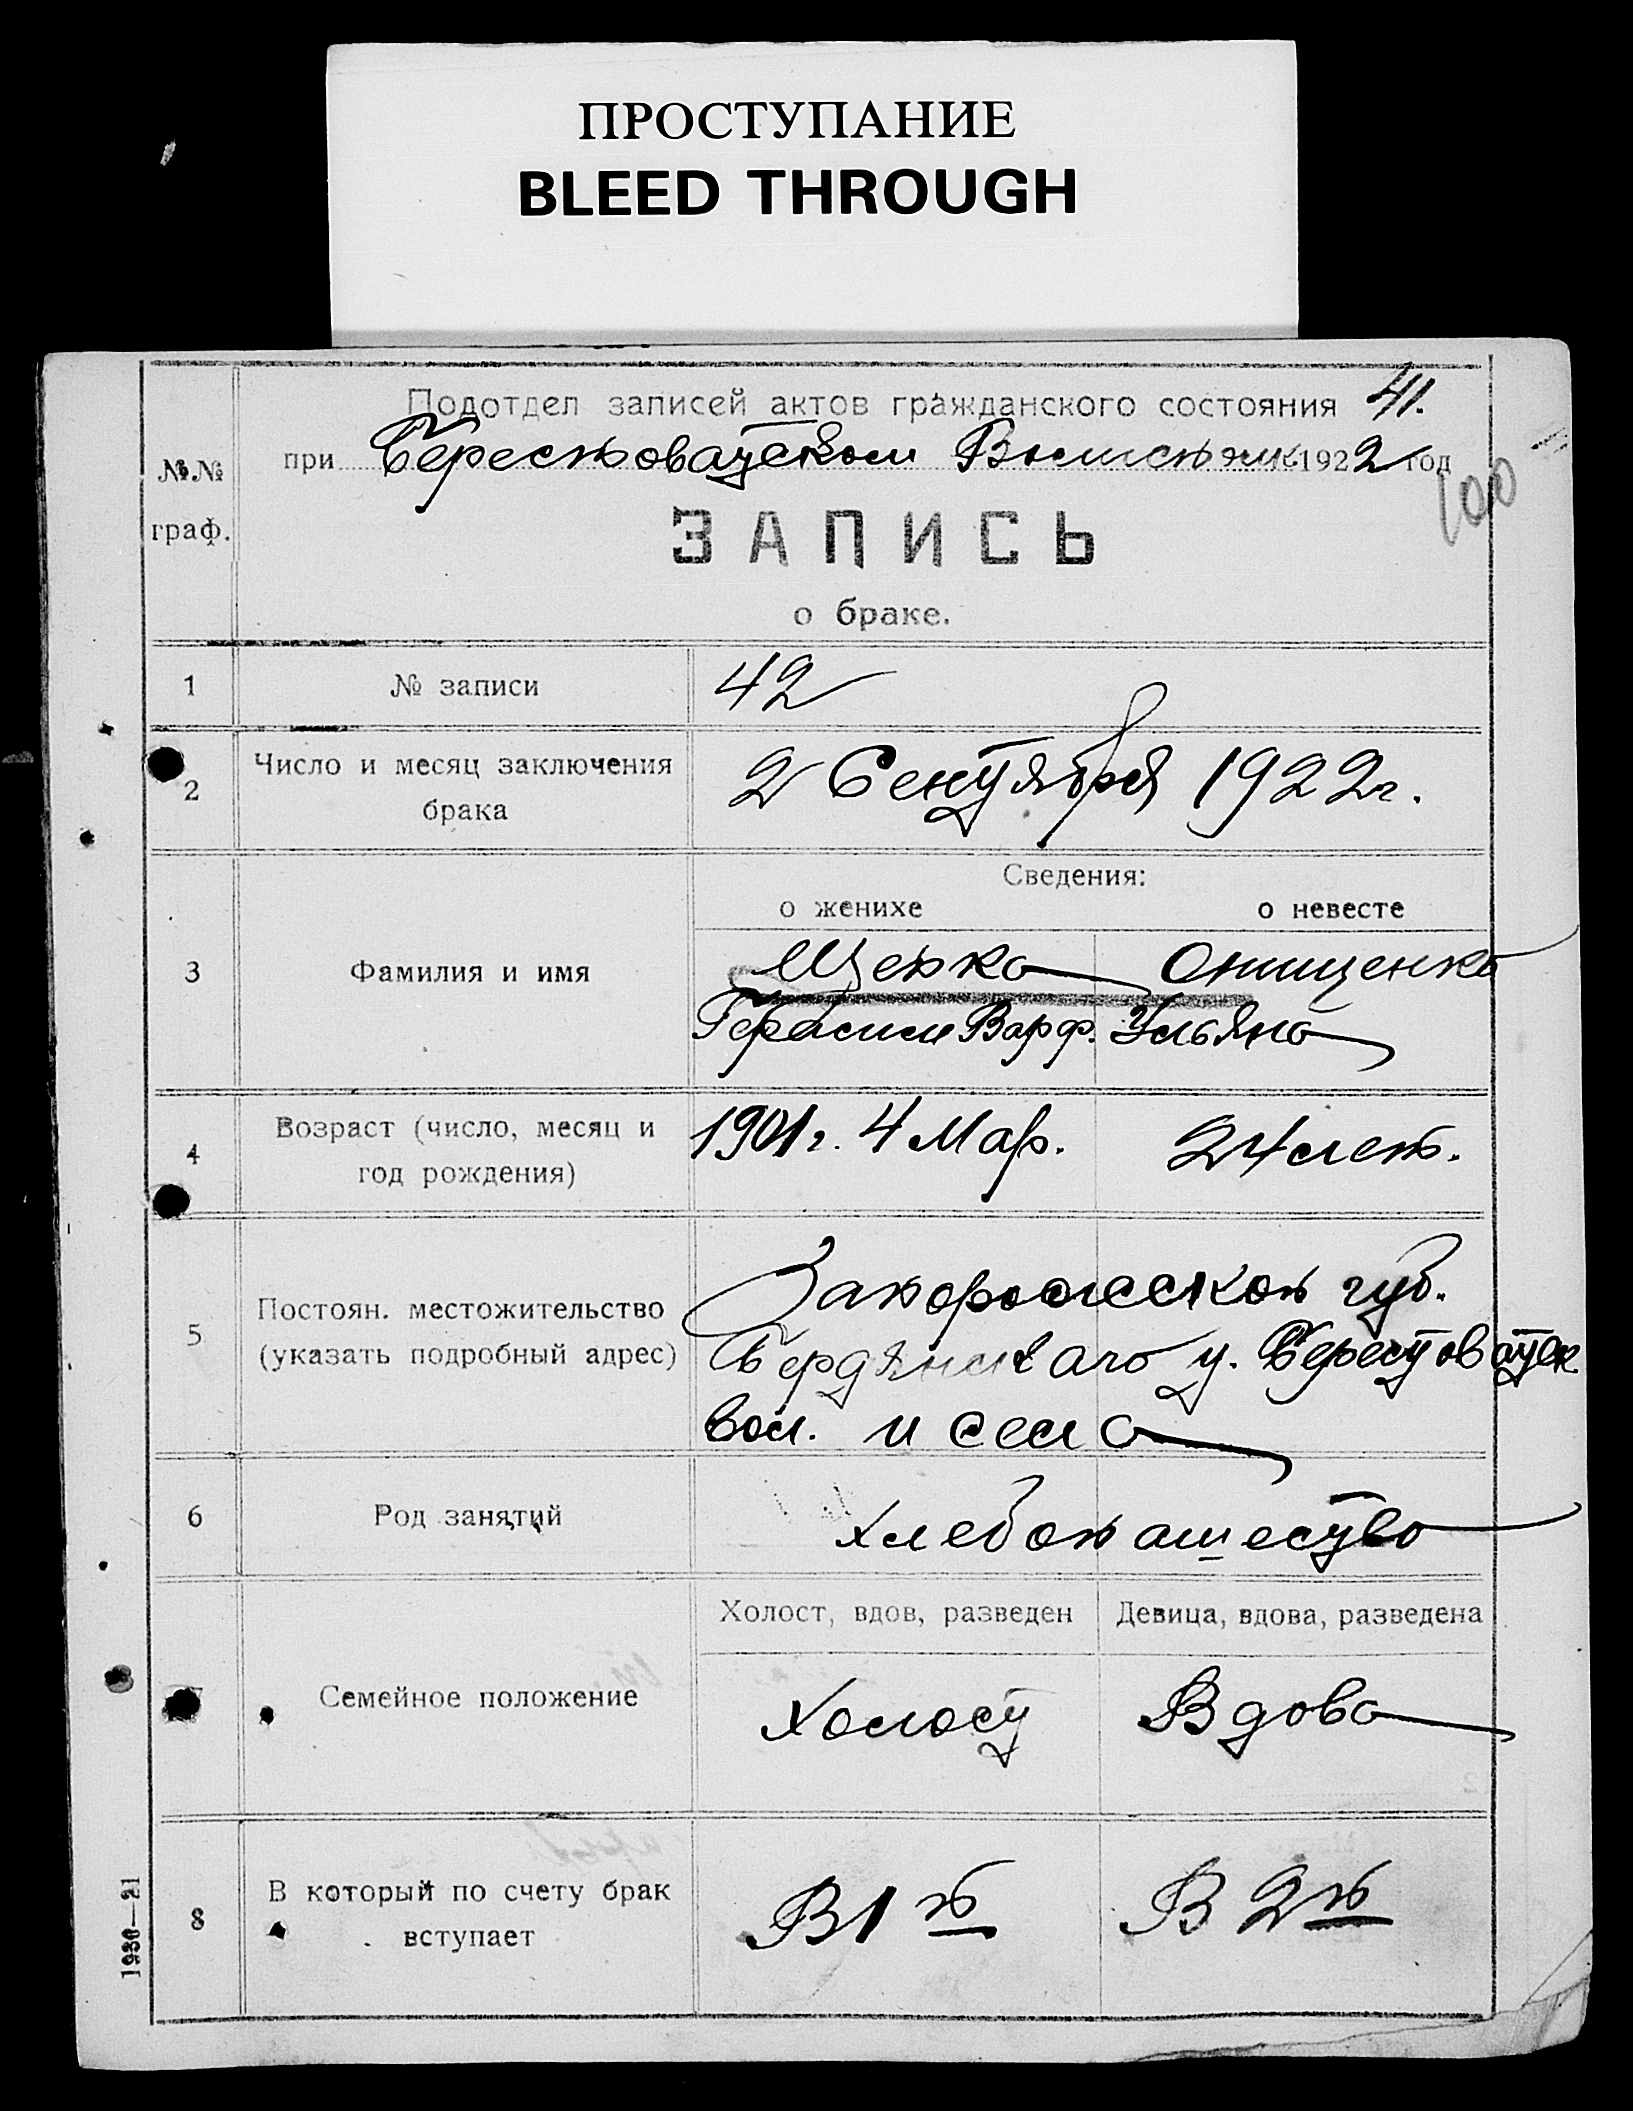 ПРОСТУПАНИЕ
BLEED THROUGH
Подотдел записей актов гражданского состояния 41.
№№ граф.
при Берестоватском 1922 год
100
ЗАПИСЬ
о браке.
1 № записи 42
2 Число и месяц заключения брака 2 Сентября 1922 г.
Сведения:
о женихе о невесте
3 Фамилия и имя Щепка Онищенко
Герасим Варф. Ульяна
4 Возраст (число, месяц и год рождения) 1901 г. 4 Мар. 24 лет.
5 Постоян. местожительство (указать подробный адрес) Запорожской губ.
Бердянского у. Берестоватск
вол. и села
6 Род занятий хлебопашество
Холост, вдов, разведен Девица, вдова, разведена
Семейное положение Холост Вдова
8 В который по счету брак вступает В 1й В 2й
1930—21